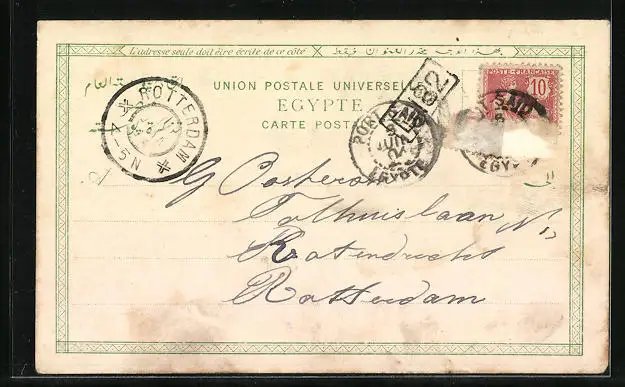 L'adresse seule doit être écrite de ce côté
UNION POSTALE UNIVERSELLE
EGYPTE
CARTE POSTALE
ROTTERDAM
4-5N
PORT SAID
9
JUIN
04
EGYPTE
POSTE FRANÇAISE
10
T SAID
EGYP
G Oosterom
Tolhuislaan No
Katendrecht
Rotterdam